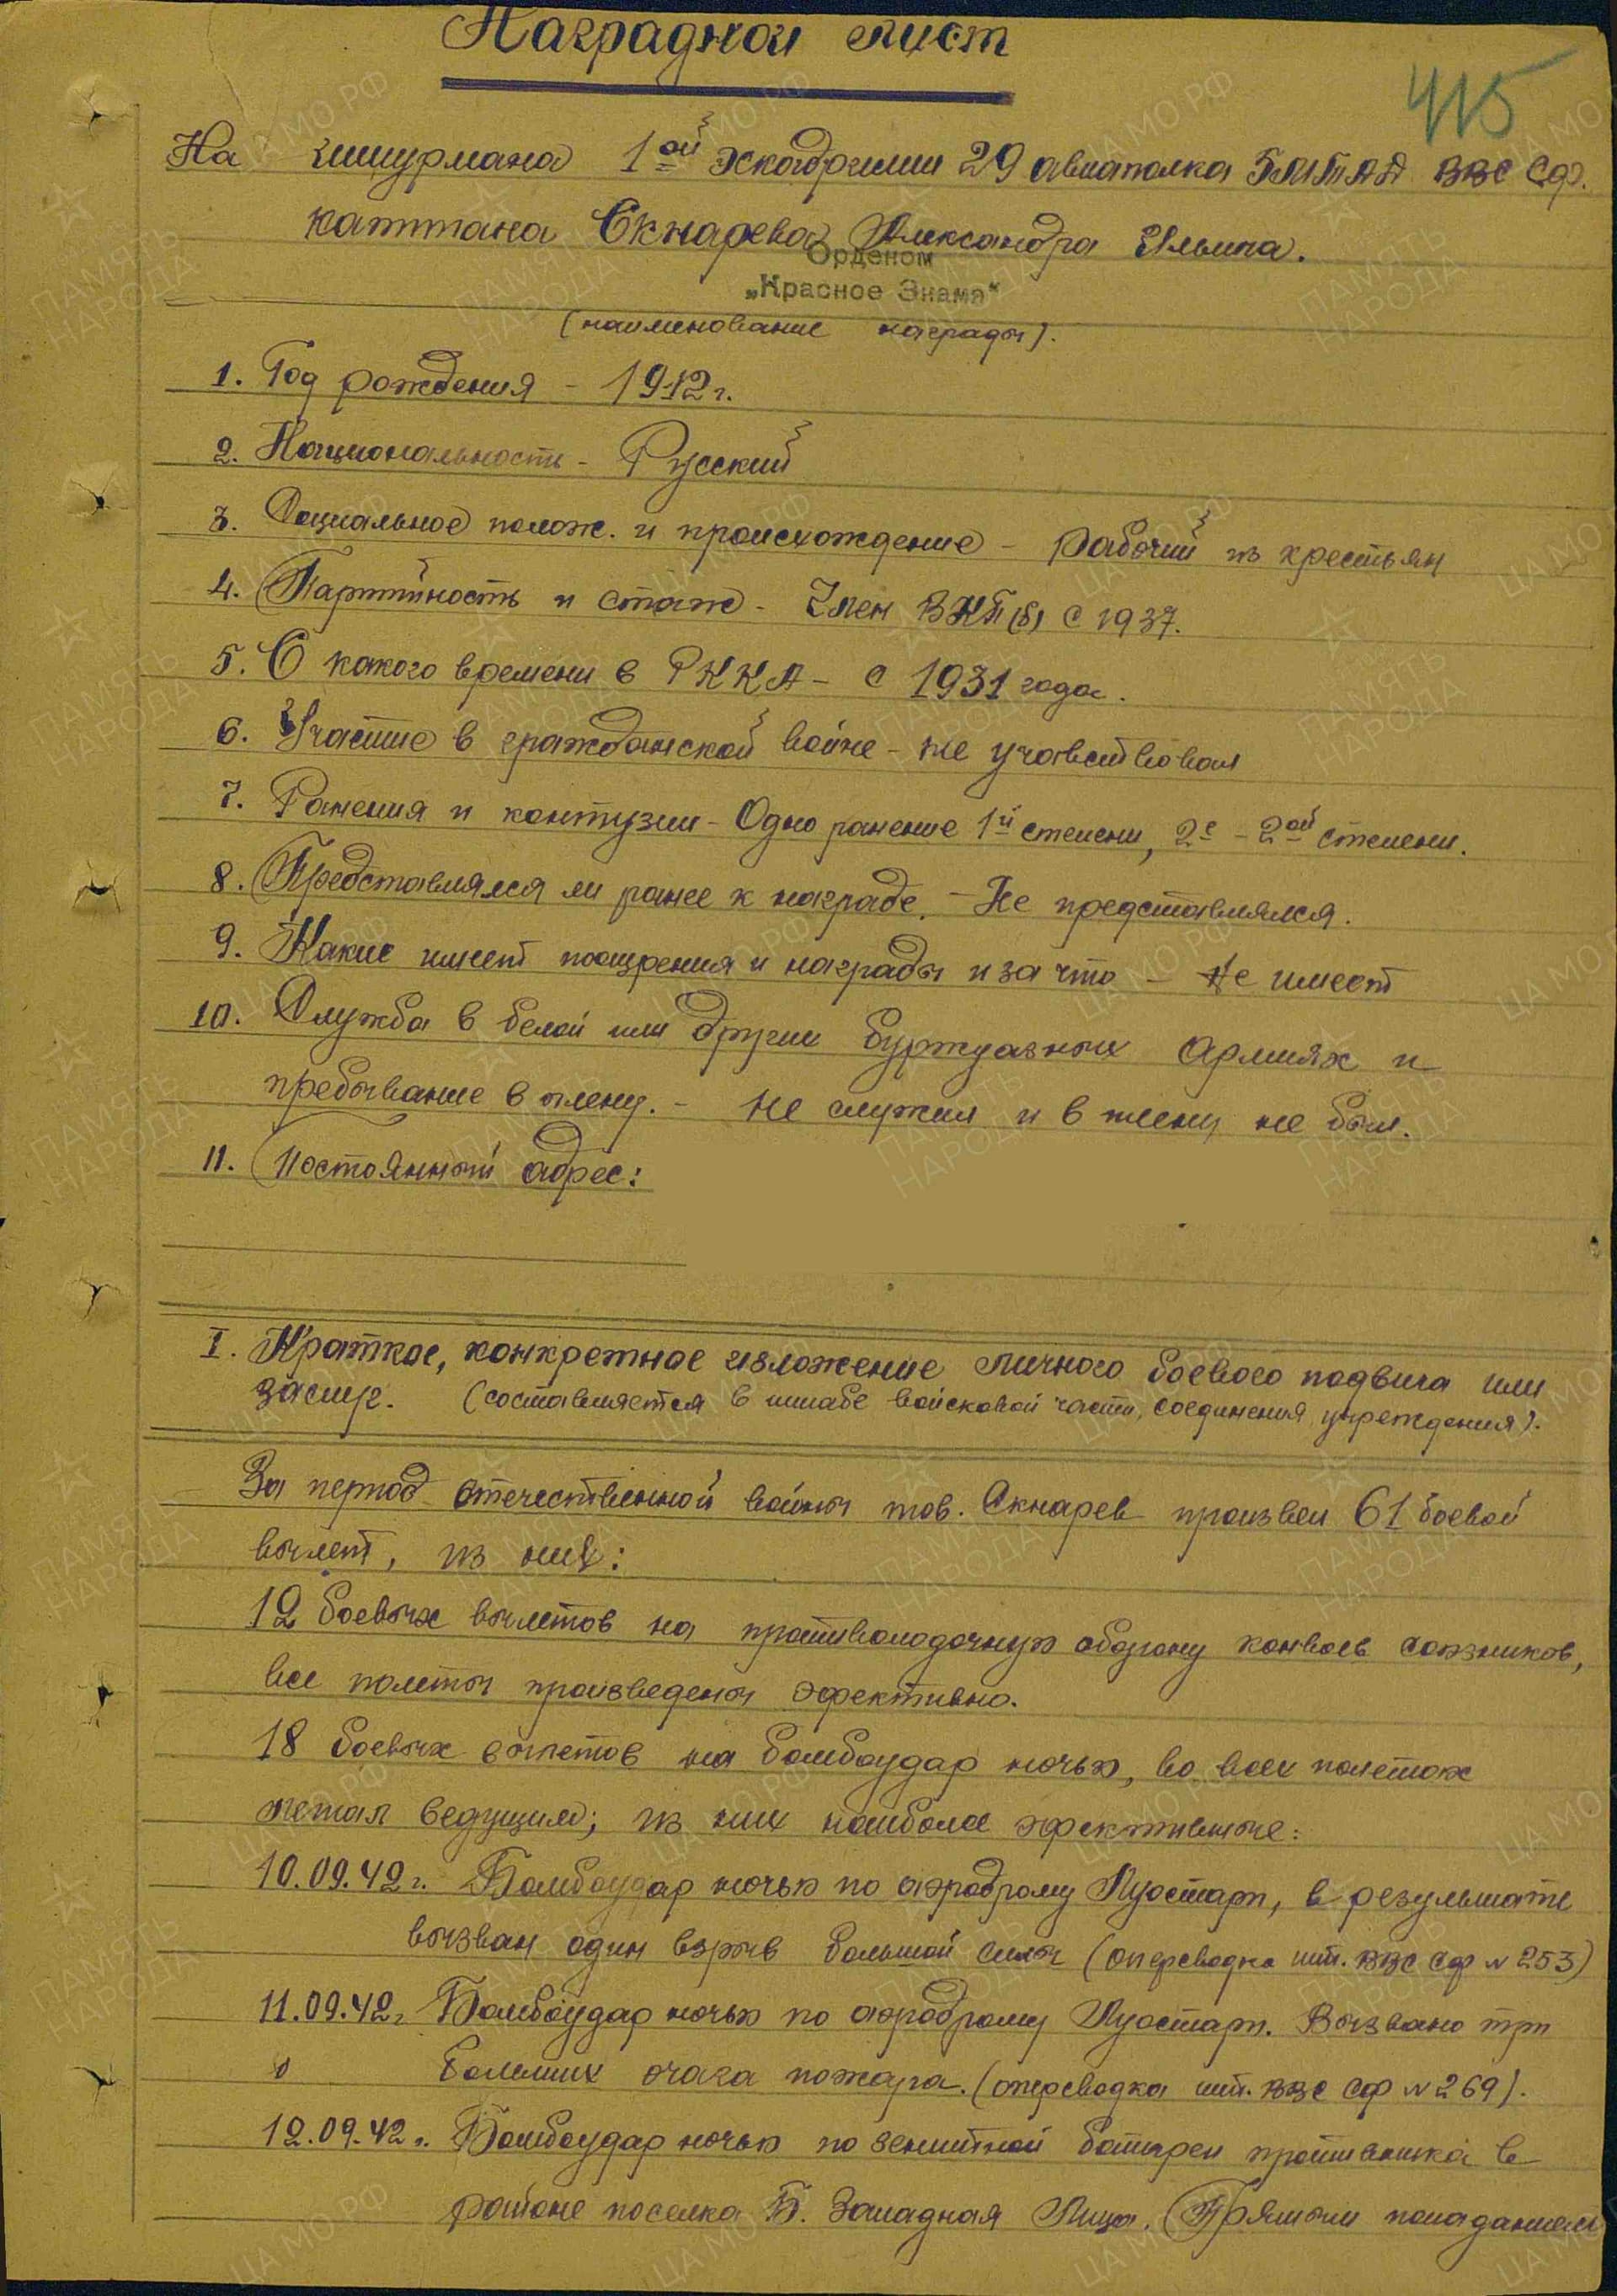 Наградной лист
415
На штурмана 1ой эскадрилии 29 авиаполка 5МТАД ВВС СФ.
капитана Скнарева Александра Ильича.
Орденом
„Красное Знамя"
(наименование награды).
1. Год рождения - 1912г.
2. Национальность - Русский
3. Социальное полож. и происхождение - рабочий из крестьян
4. Партийность и стаж - Член ВКП(б) с 1937.
5. С какого времени в РККА - с 1931 года.
6. Участие в гражданской войне - не учавствовал
7. Ранения и контузии - Одно ранение 1й степени, 2е - 2ой степени.
8. Представлялся ли ранее к награде. - Не представлялся.
9. Какие имеет поощрения и награды и за что - Не имеет
10. Служба в белой или других буржуазных армиях и
пребывание в плену. - Не служил и в плену не был.
11. Постоянный адрес:
I. Краткое, конкретное изложение личного боевого подвига или
заслуг. (составляется в штабе войсковой части, соединения, учреждения).
За период отечественной войны тов. Скнарев произвел 61 боевой
вылет, из них:
12 боевых вылетов на противолодочную оборону конвоев союзников,
все полеты произведены эфективно.
18 боевых вылетов на бомбоудар ночью, во всех полетах
летал ведущим; из них наиболее эфективные:
10.09.42г. Бомбоудар ночью по аэродрому Луостари, в результате
вызван один взрыв большой силы (опер сводка шт. ВВС СФ № 253)
11.09.42г. Бомбоудар ночью по аэродрому Луостари. Вызвано три
больших очага пожара. (опер сводка шт. ВВС СФ № 269).
12.09.42г. Бомбоудар ночью по зенитной батареи противника в
районе поселка Б. Западная Лица. Прямым попаданием